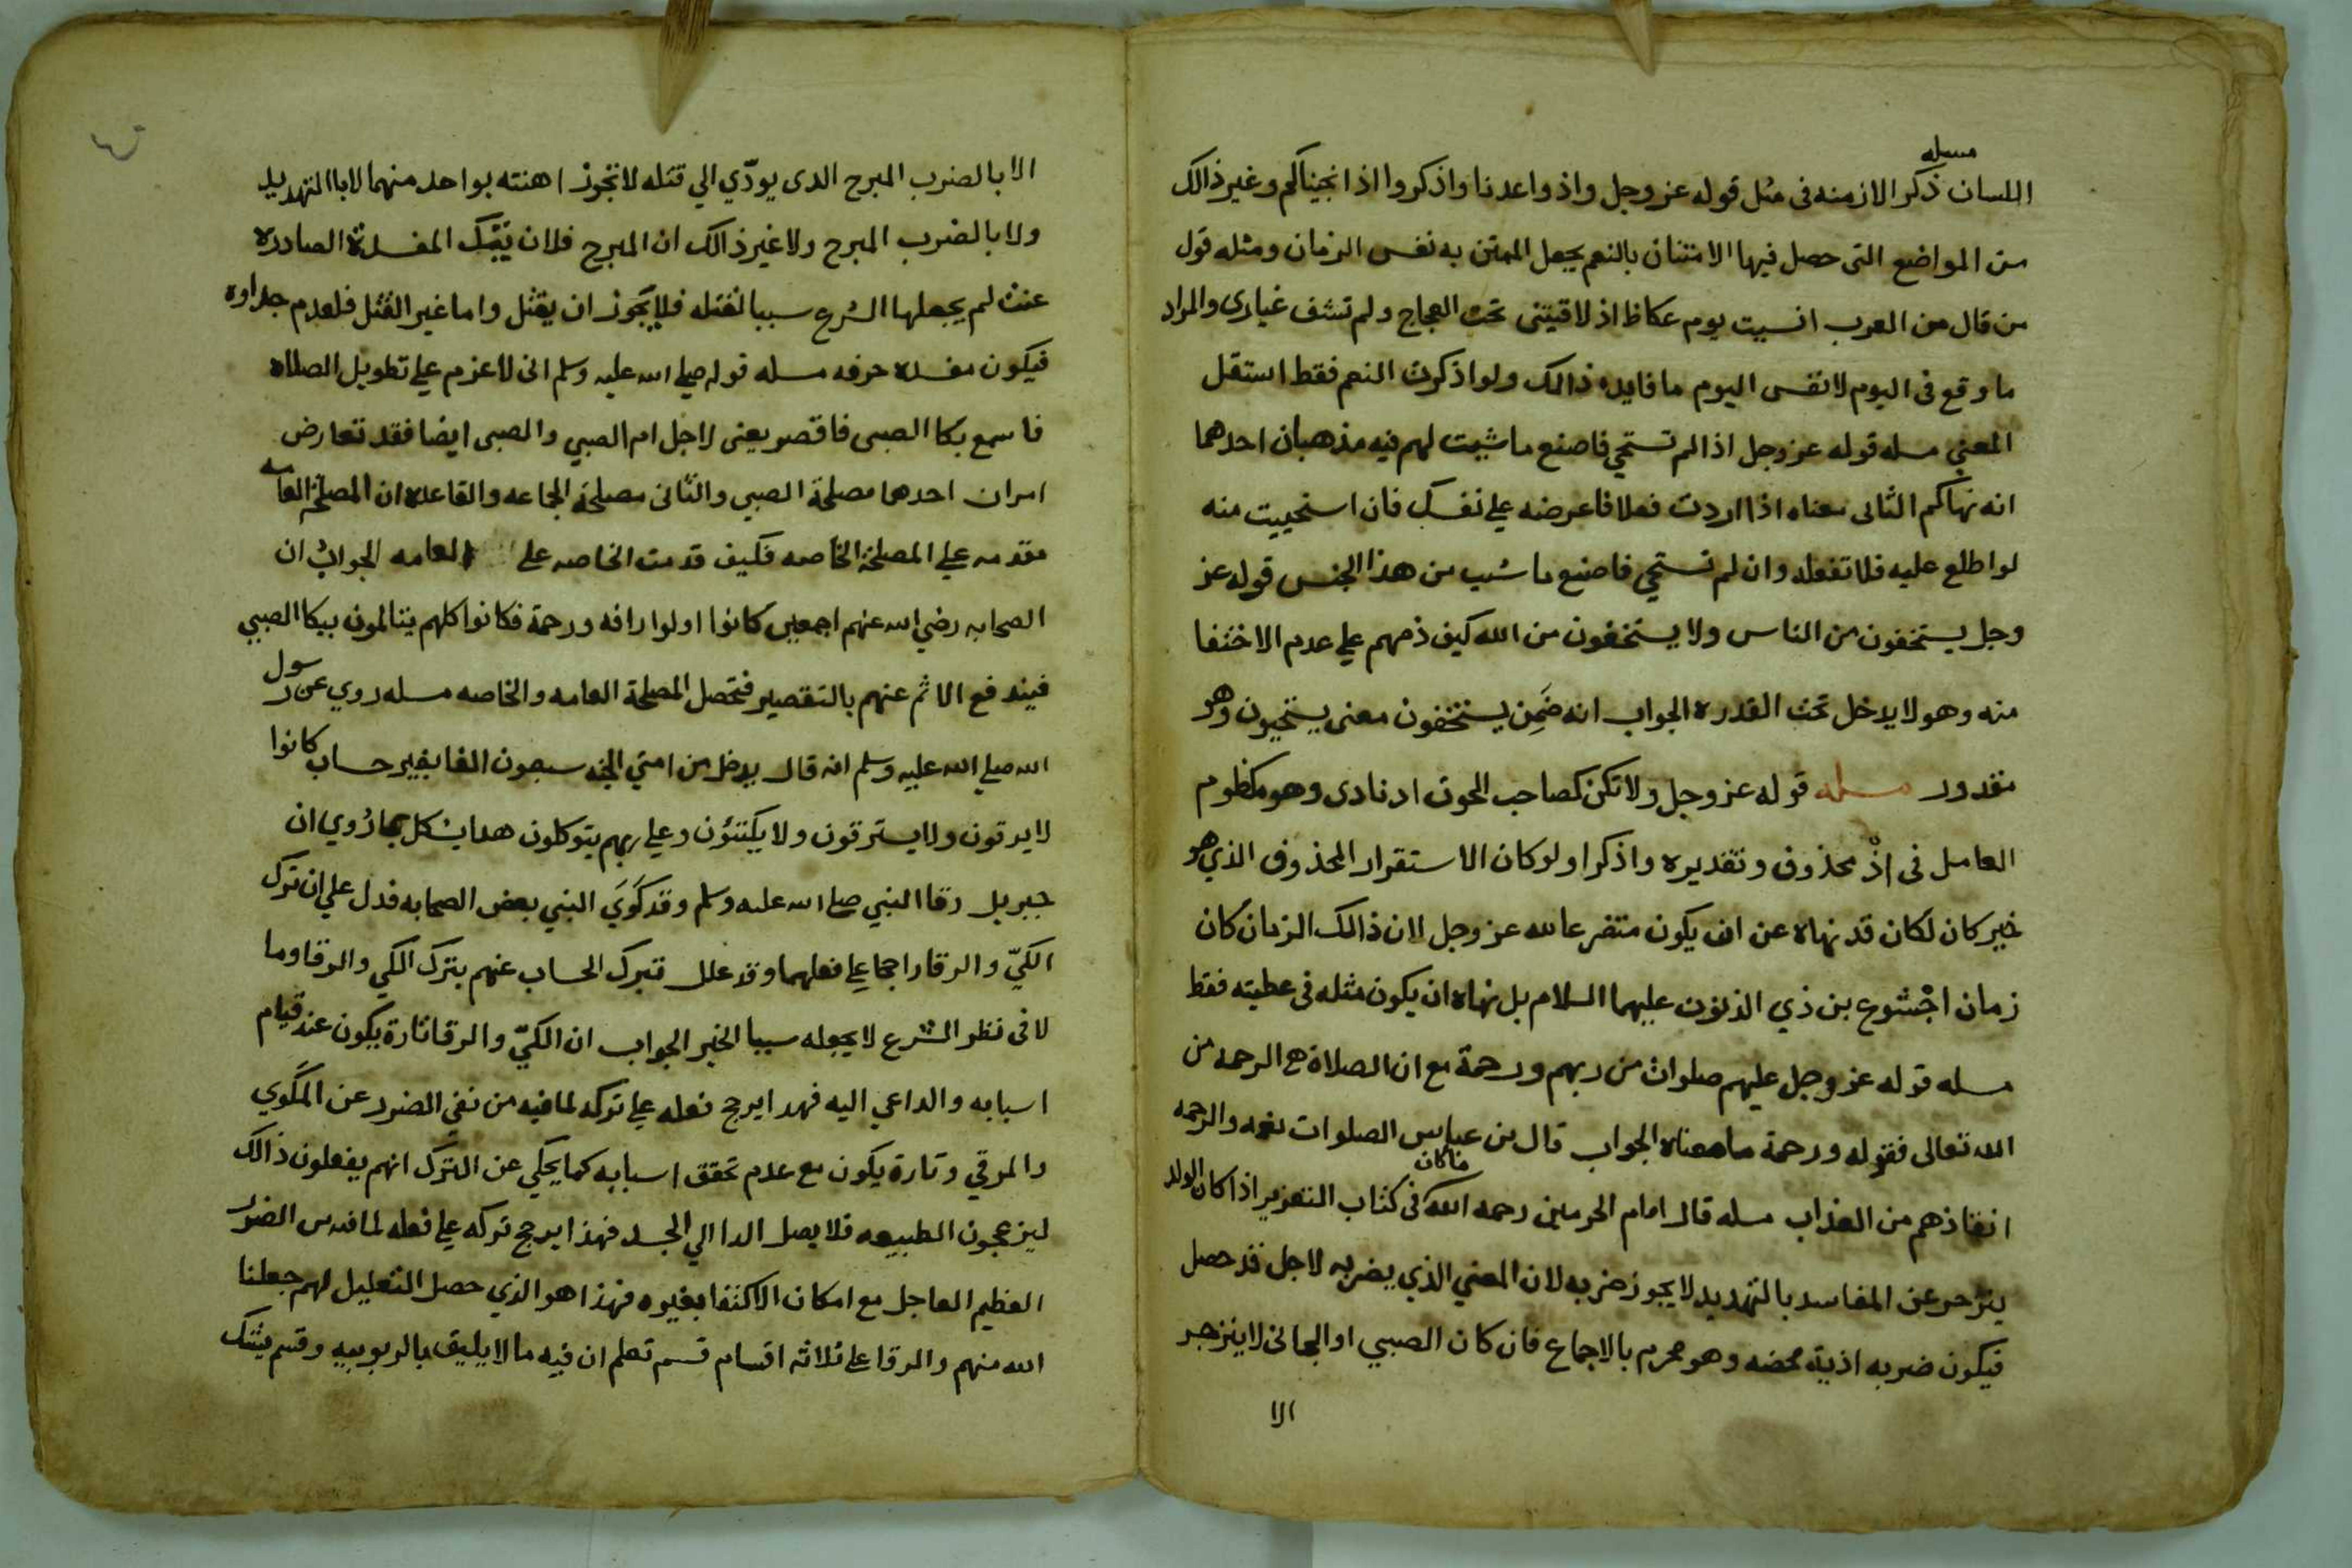 مسله
اللسان ذكر الازمنه فى مثل قوله عز وجل واذ واعدنا واذكروا اذ انجيناكم وغير ذالك
من المواضع التى حصل فيها الامتنان بالنعم يجعل الممتن به نفس الزمان ومثله قول
من قال من العرب انسيت يوم عكاظ اذ لاقيتنى تحت العجاج ولم تشف غبارى والمراد
ما وقع فى اليوم لا نفس اليوم ما فايده ذالك ولو اذكرت النعم فقط استقل
المعنى مسله قوله عز وجل اذا لم تستحي فاصنع ما شيت لهم فيه مذهبان احدهما
انه نهاكم الثانى معناه اذا اردت فعلا فاعرضه علي نفسك فان استحييت منه
لو اطلع عليه فلا تفعله وان لم تستحي فاصنع ما شيت من هذا الجنس قوله عز
وجل يستخفون من الناس ولا يستخفون من الله كيف ذمهم علي عدم الاختفا
منه وهو لا يدخل تحت القدره الجواب انه ضَمِن يستخفون معنى يستحيون وهو
مقدور مسله قوله عز وجل ولا تكن كصاحب الحوت اد نادى وهو مكظوم
العامل فى اذْ محذوف وتقديره واذكر اولوكان الاستقرار المحذوف الذي هو
خبر كان لكان قد نهاه عن ان يكون متضرعا لله عز وجل لان ذالك الزمان كان
زمان اجْشوع بن ذي النون عليهما السلام بل نهاه ان يكون مثله فى عطيته فقط
مسله قوله عز وجل عليهم صلوات من ربهم ورحمة مع ان الصلاة هي الرحمه من
الله تعالى فقوله ورحمة ما معناه الجواب قال بن عباس الصلوات نعمه والرحمه
انقاذهم من العذاب مسله قال امام الحرمين رحمه الله فى كتاب التعزير اذا كان الولد
ينزجر عن المفاسد بالتهديد لا يجوز ضربه لان المعني الذي يضربه لاجل قد حصل
فيكون ضربه اذية محضه وهو محرم بالاجماع فان كان الصبي او الجانى لا ينزجر
الا
الا بالضرب المبرح الدى يودّي الي قتله لا تجوز اهنته بواحد منهما لا بالتهديد
ولا بالضرب المبرح ولا غير ذالك ان المبرح فلان تيك المفسدة الصادره
عنه لم يجعلها الشرع سببا لقتله فلا يجوز ان يقتل واما غير القتل فلعدم جداوه
فيكون مفسده حرفه مسله قوله صلي الله عليه وسلم انى لاعزم علي تطويل الصلاه
فاسمع بكا الصبى فاقصر يعنى لاجل ام الصبي والصبى ايضا فقد تعارض
امران احدهما مصلحة الصبي والثانى مصلحة الجماعه والقاعده ان المصلحة العامه
مقدمه علي المصلحة الخاصه فكيف قدمت الخاصه على العامه الجواب ان
الصحابه رضي الله عنهم اجمعين كانوا اولوا رافه ورحمة فكانوا كلهم يتالمون ببكا الصبي
فيندفع الاثم عنهم بالتقصير فتحصل المصلحة العامه والخاصه مسله روي عن رسول
الله صلي الله عليه وسلم انه قال يدخل من امتي الجنه سبعون الفا بغير حساب كانوا
لا يرقون ولا يسترقون ولا يكتوُن وعلي ربهم يتوكلون هدا يشكل بما رُوي ان
جبريل رقا النبي صلي الله عليه وسلم وقد كَوَيَ النبي بعض الصحابه فدل علي ان ترك
الكيّ والرقا راجحا علي فعلهما وقد علل تبرك الحساب عنهم بترك الكي والرقا وما
لا فى نظر الشرع لا يجعله سببا الخير الجواب ان الكيّ والرقا تارة يكون عند قيام
اسبابه والداعي اليه فهدا يرجح فعله علي تركه لما فيه من نفي الضرر عن المَكوي
والمرقي وتارة يكون مع عدم تحقق اسبابه كما يحكي عن الترك انهم يفعلون ذالك
ليزعجون الطبيعه فلا يصل الدا الي الجسد فهذا يرجح تركه علي فعله لما فيه من الضرر
العظيم العاجل مع امكان الاكتفا بغيره فهذا هو الذي حصل التعليل لهم جعلنا
الله منهم والرقا علي ثلاثه اقسام قسم تعلم ان فيه ما لا يليق بالربوبيه وقسم يشك